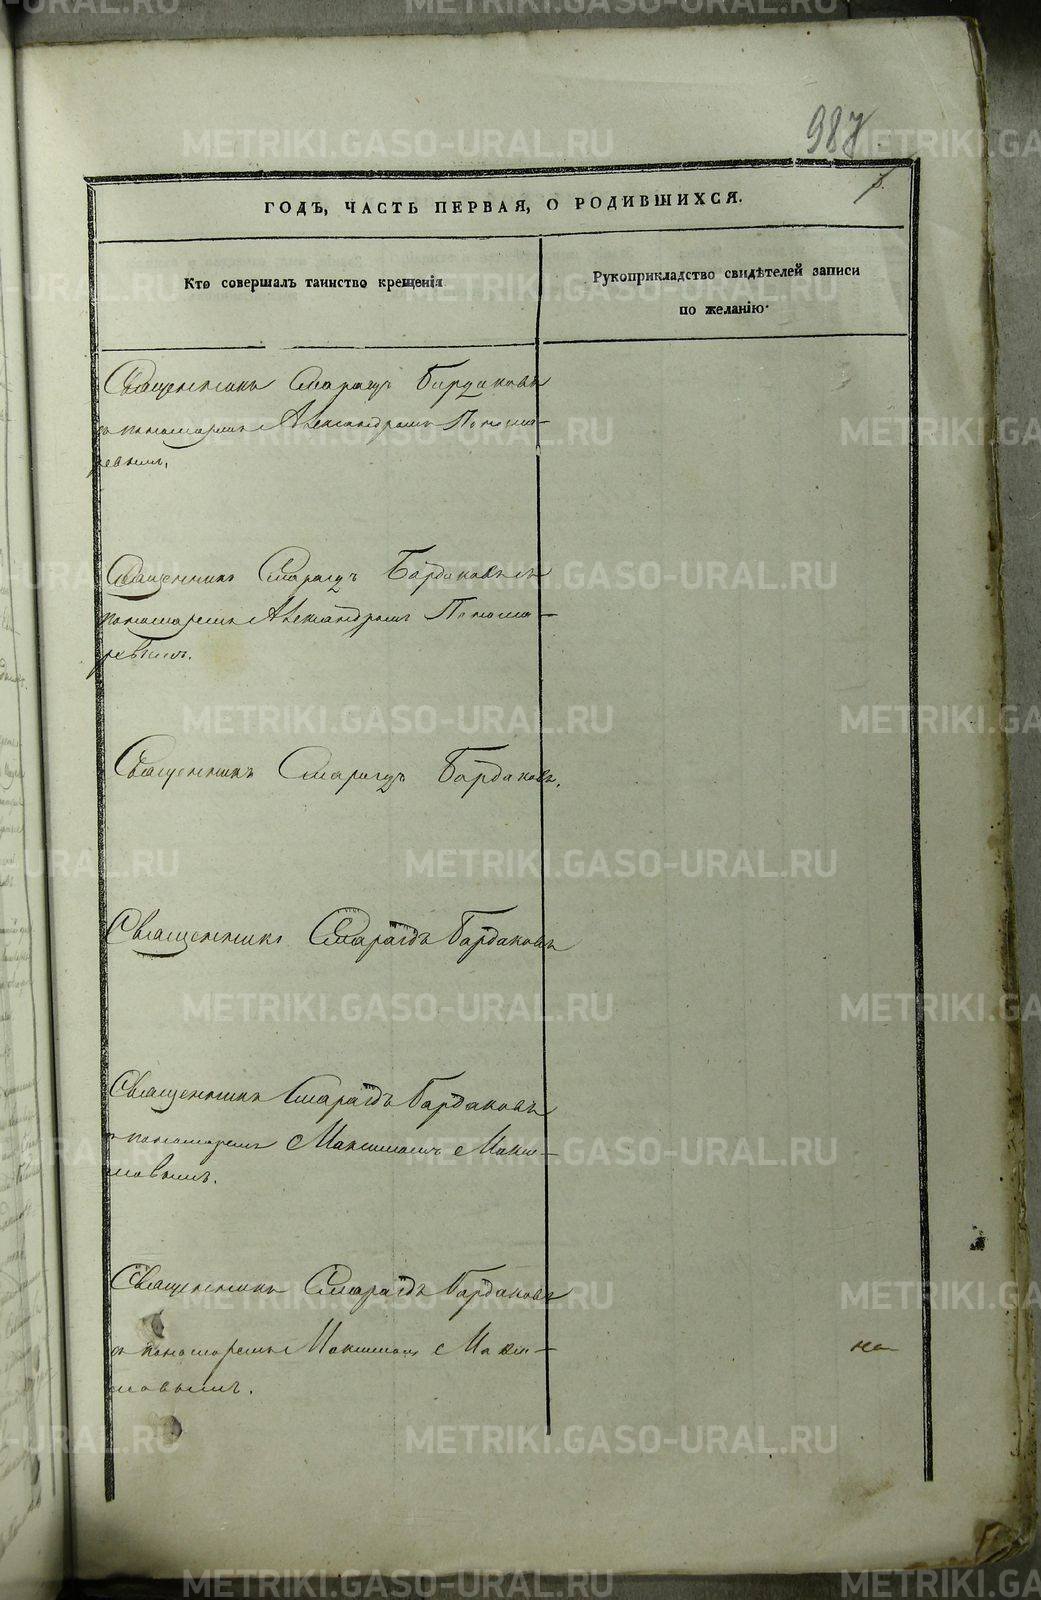 987
ГОДЪ, ЧАСТЬ ПЕРВАЯ, О РОДИВШИХСЯ.
Кто совершалъ таинство крещенія
Рукоприкладство свидѣтелей записи
по желанію.
Священникъ Смарагдъ Бардаковъ
съ пономаремъ Александромъ Понома-
ревымъ.
Священникъ Смарагдъ Бардаковъ съ
пономаремъ Александромъ Понома-
ревымъ.
Священникъ Смарагдъ Бардаковъ.
Священникъ Смарагдъ Бардаковъ
Священникъ Смарагдъ Бардаковъ
съ пономаремъ Максимомъ Макси-
мовымъ.
Священникъ Смарагдъ Бардаковъ
съ пономаремъ Максимомъ Макси-
мовымъ.
METRIKI.GASO-URAL.RU